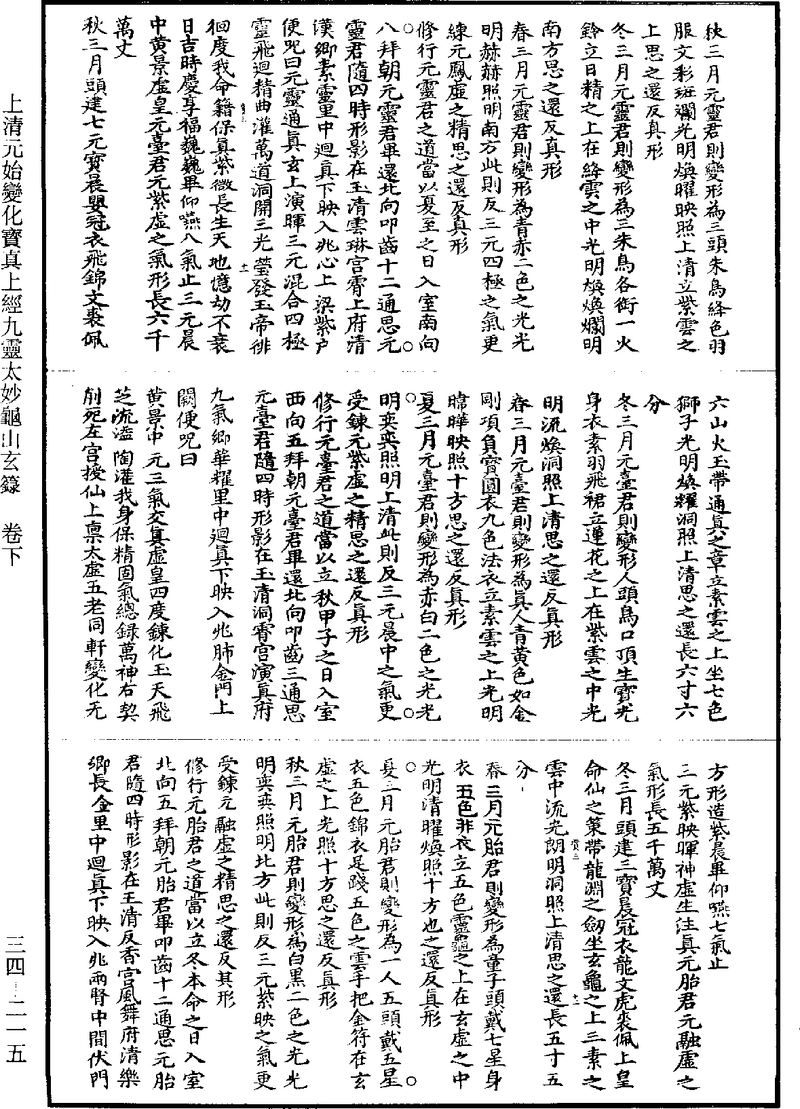 秋三月元靈君則變形為三頭朱鳥絳色羽
服文彩斑斕光明煥曜映照上清立紫雲之
上思之還反真形
冬三月元靈君則變形為三朱鳥各銜一火
鈴立日精之上在絳雲之中光明煥煥爛明
南方思之還反真形
春三月元靈君則變形為青赤二色之光光
明赫赫照明南方此則反三元四極之氣更
練元鳳虛之精思之還反真形
修行元靈君之道當以夏至之日入室南向
八拜朝元靈君畢還北向叩齒十二通思元
靈君隨四時形影在玉清雲琳宮霄上府清
漢鄉素靈里中迴真下映入兆心上梁紫戶
便呪曰元靈通真玄上演暉三元混合四極
靈飛迴精曲灌萬道洞開三光瑩發玉帝徘
徊度我命籍保真紫微長生天地億劫不衰
日吉時慶享福巍巍畢仰嚥八氣止三元晨
中黃景虛皇元臺君元紫虛之氣形長六千
萬丈
秋三月頭建七元寶晨嬰冠衣飛錦文裘佩
六山火玉帶通真之章立素雲之上坐七色
獅子光明煥耀洞照上清思之還長六寸六
分
冬三月元臺君則變形人頭鳥口頂生寶光
身衣素羽飛裙立蓮花之上在紫雲之中光
明流煥洞照上清思之還反真形
春三月元臺君則變形為真人青黃色如金
剛項負寶圓衣九色法衣立素雲之上光明
暐曄映照十方思之還反真形
夏三月元臺君則變形為赤白二色之光光
明奕奕照明上清此則反三元晨中之氣更
受鍊元紫虛之精思之還反真形
修行元臺君之道當以立秋甲子之日入室
西向五拜朝元臺君畢還北向叩齒三通思
元臺君隨四時形影在玉清洞睿宮演真府
九氣鄉華耀里中迴真下映入兆肺金門上
闕便呪曰
黃景中元三氣交真虛皇四度鍊化玉天飛
芝流溢陶灌我身保精固氣總錄萬神右契
削死左宮授仙上稟太虛五老同軒變化无
方形造紫晨畢仰嚥七氣止
三元紫映暉神虛生注真元胎君元融虛之
氣形長五千萬丈
冬三月頭建三寶晨冠衣龍文虎裘佩上皇
命仙之策帶龍淵之劒坐玄龜之上三素之
雲中流光朗明洞照上清思之還長五寸五
分
春三月元胎君則變形為童子頭戴七星身
衣五色非衣立五色靈龜之上在玄虛之中
光明清曜煥照十方也之還反真形
夏三月元胎君則變形為一人五頭戴五星
衣五色錦衣足踐五色之雲手把金符在玄
虛之上光照十方思之還反真形
秋三月元胎君則變形為白黑二色之光光
明奕奕照明北方此則反三元紫映之氣更
受鍊元融虛之精思之還反其形
修行元胎君之道當以立冬本命之日入室
北向五拜朝元胎君畢叩齒十二通思元胎
君隨四時形影在玉清反香宮風舞府清樂
鄉長金里中迴真下映入兆兩腎中間伏門
上清元始變化寶真上經九靈太妙龜山玄籙 卷下
三四－二一五